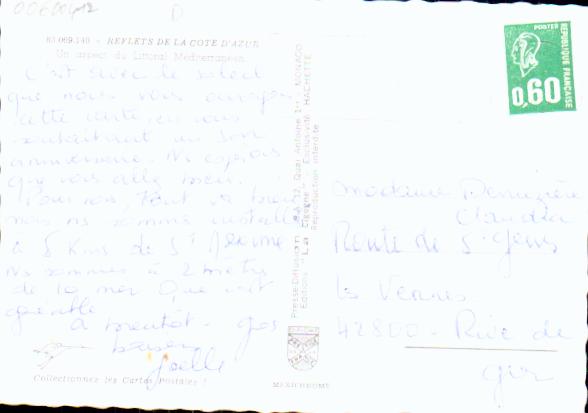 83.069.140 - REFLETS DE LA COTE D'AZUR
Un aspect du Littoral Méditerranéen
C'est avec le soleil
que nous vous envoyons
cette carte, en vous
souhaitant un bon
anniversaire. Ns espérons
que vous allez bien.
Pour nous, tout va bien
nous ns sommes installés
à 8 Kms de St
Ns sommes à 2 mètres
de la mer. Que c'est
agréable
A bientôt - gros
baisers
Joëlle
Collectionnez les Cartes Postales !
Presse-Diffusion S.A. 12, Quai Antoine 1er MONACO
Editions "La Cigogne" - Exclusivité HACHETTE
Reproduction interdite
MEXICHROME
POSTES
REPUBLIQUE FRANÇAISE
0,60
Madame
Claudia
Route de St Genis
les Vernes
42800 - Rive de
Gier